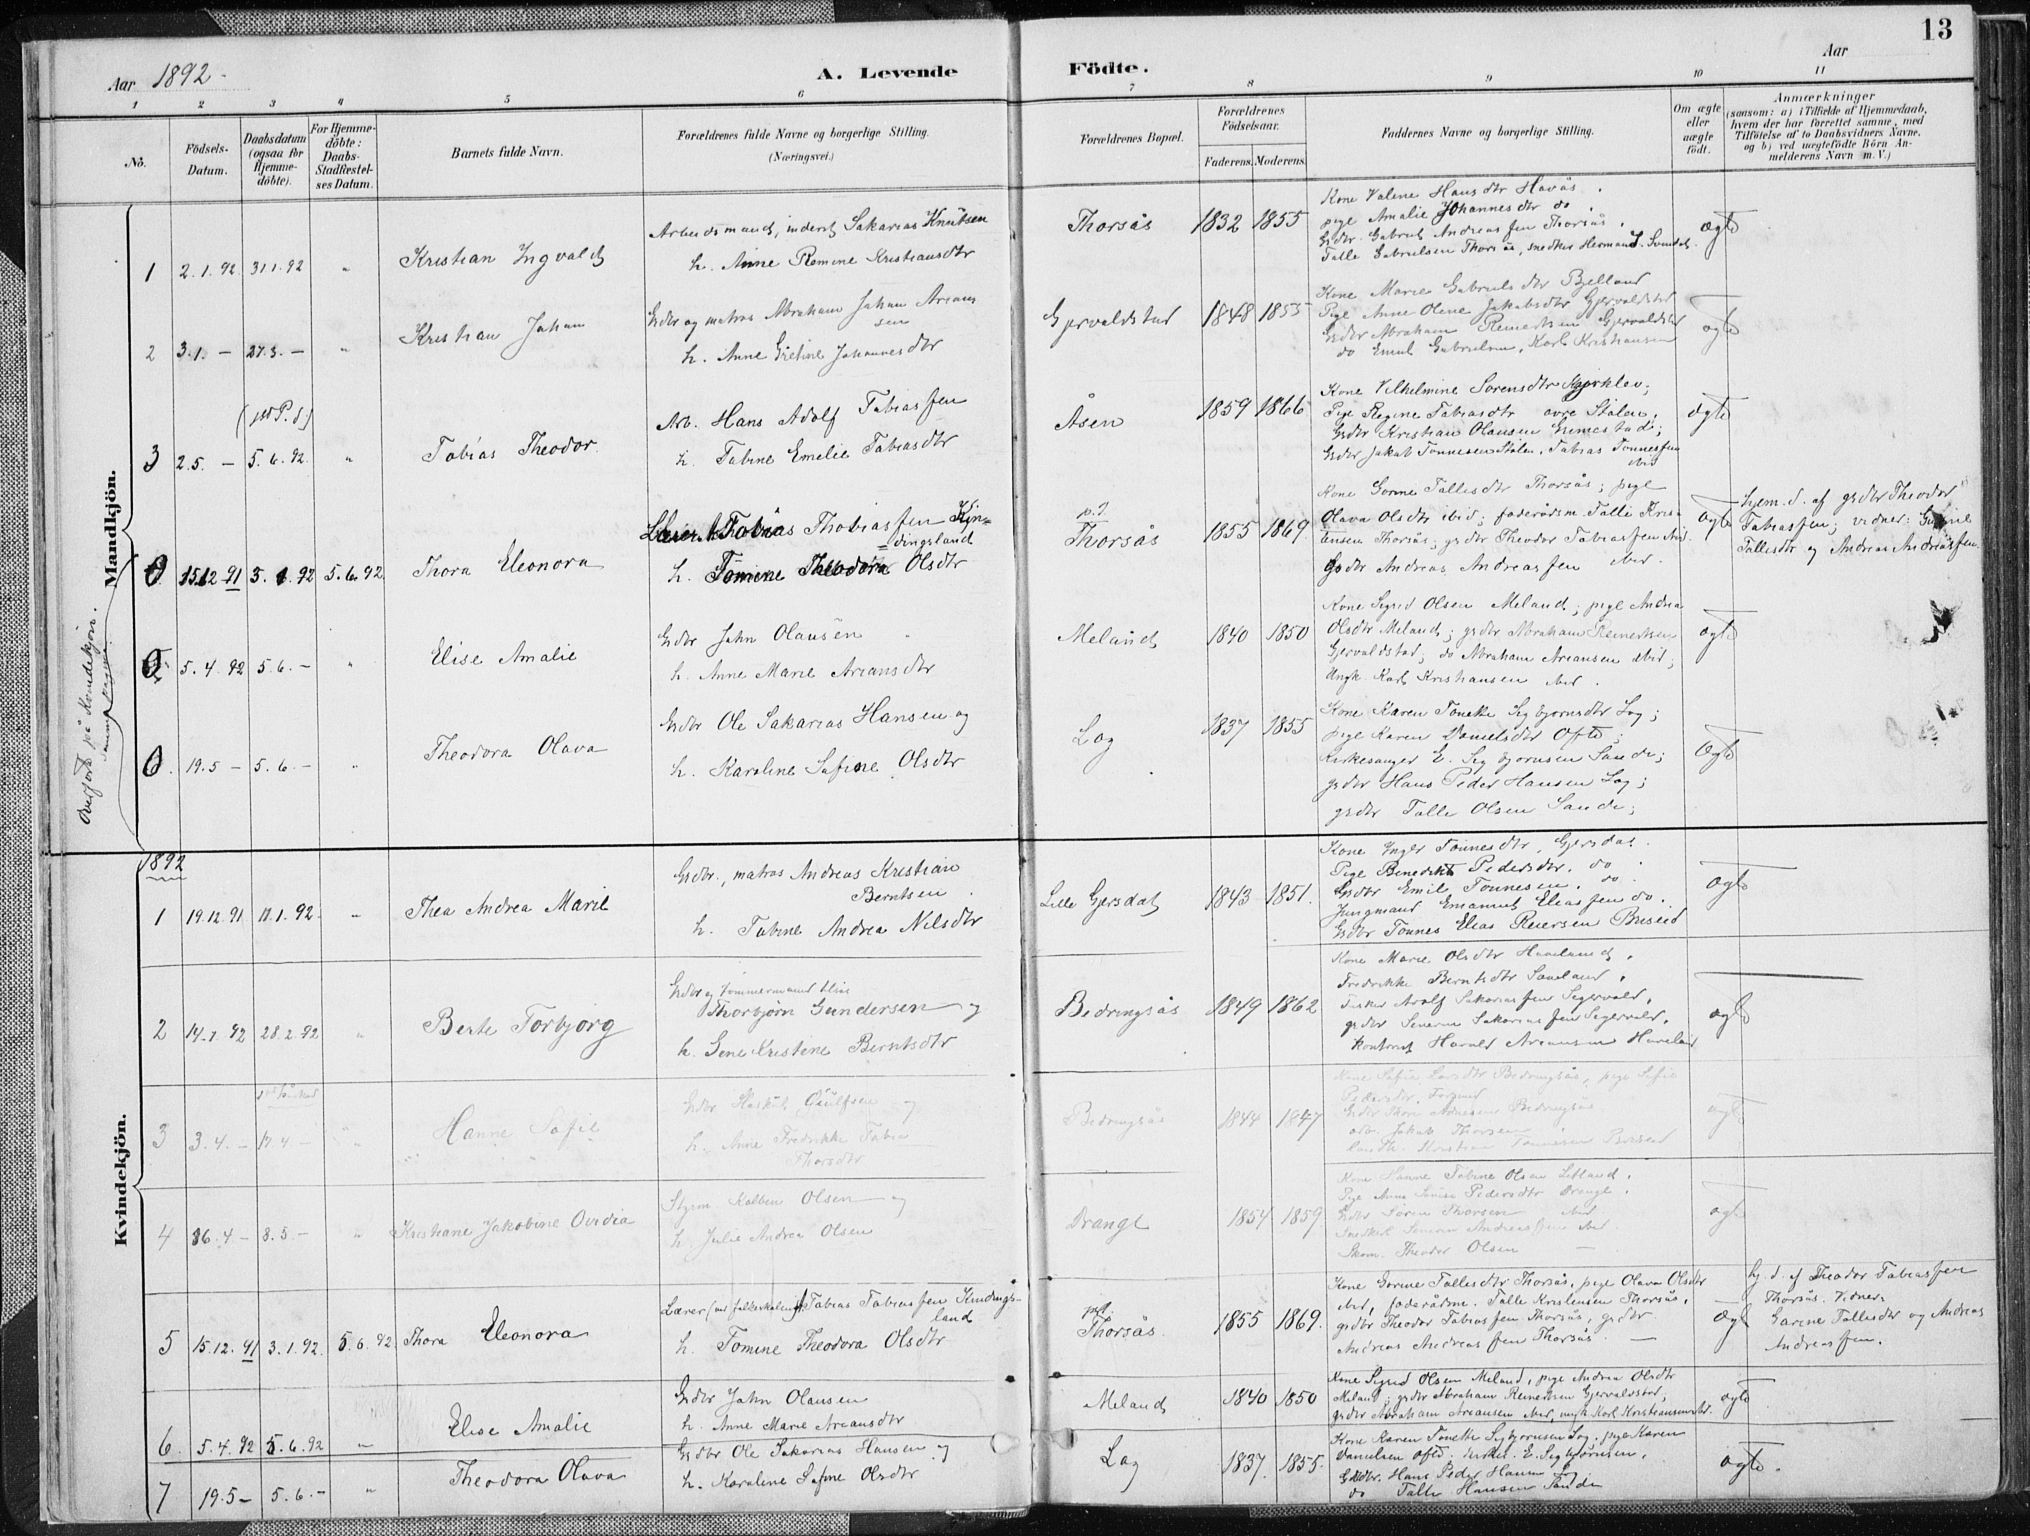 13
Aar 1892.
A. Levende Födte.
Aar
1 2 3 4 5 6 7 8 9 10 11
No.
Födsels-Datum.
Daabsdatum (ogsaa for Hjemme-döbte).
For Hjemme-döbte: Daabs-Stadfæstel-ses Datum.
Barnets fulde Navn.
Forældrenes fulde Navne og borgerlige Stilling. (Næringsvei.)
Forældrenes Bopæl.
Forældrenes Födselsaar.
Faderens. Moderens.
Faddernes Navne og borgerlige Stilling.
Om ægte eller uægte födt.
Anmærkninger
(saasom: a) i Tilfælde af Hjemmedaab,
hvem der har forrettet samme, med
Tilföielse af to Daabsvidners Navne,
og b) ved uægtefödte Börn An-
melderens Navn m. V.)
Mandkjön.
1 2.1.92 31.1.92 " Kristian Ingvald
Arbeidsmand, inderst Sakarias Knutsen
h. Anne Romine Kristiansdtr
Thorsås 1832 1855
Kone Valene Hansdtr Havås.
pige Amalie Johannesdtr do.
Gdbr. Gabriel Andreassen Thorsås.
Talle Gabrielsen Thorsås, snedker Herman J. Svindal.
ægte
2 3.1. — 27.3. — " Kristian Johan
Gdbr og matros Abraham Johan Arians
sen
h. Anne Gretine Johannesdtr
Gjervoldstad 1848 1855
Kone Marie Gabrielsdtr Bjelland
Pige Anne Olene Jakobsdtr Gjervoldstad
Gdbr Abraham Reinertsen Gjervoldstad
do Emil Gabrielsen, Karl Kristiansen
ægte
3 2.5. — 5.6.92. " Tobias Theodor.
Arb. Hans Adolf Tobiassen
h. Tabine Emelie Tobiasdtr
Åsen 1859 1866
Kone Vilhelmine Sorensdtr
Pige Regine Tobiasdtr øvre Stølen,
Gdbr Kristian Olausen Grimestad;
Gdbr Jakob Tønnesen Stølen, Tobias Tønnessen
ibid
ægte
0 15.12-91 3.1.92 5.6.92 Thora Eleonora
Lærer Tobias Thobiassen Kin=
=dingsland
h. Tomine Theodora Olsdtr
p.t.
Thorsås 1855 1869.
Kone Gorine Tallesdtr Thorsås; pige
Olava Olsdtr ibid; føderådsm. Talle Kristi
ensen Thorsås; gdbr Theodor Tobiassen ibid.
Gdbr Andreas Andreassen ibid.
ægte
hjem.d. af gdbr Theodor
Tobiassen; vidner: Gorine
Tallesdtr og Andreas Andreassen.
Overført på Kvindekjøn.
samme pagina.
0 5.4.92 5.6.— " Elise Amalie
Gdbr John Olausen
h. Anne Marie Ariansdtr
Meland 1840 1850
Kone Sigrid Olsen Meland; pige Andrea
Olsdtr Meland; gdbr Abraham Reinertsen
Gjervoldstad; do Abraham Ariansen ibid;
Ungk. Karl Kristiansen ibid.
ægte
0. 19.5 — 5.6.— " Theodora Olava
Gdbr Ole Sakarias Hansen og
h. Karoline Sofine Olsdtr
Log 1837 1855
Kone Karen Tonette Sigbjørnsdtr Log;
pige Karen Danielsdtr Ofte;
Kirkesanger E. Sigbjørnsen Sande;
gdbr Hans Peder Hansen Log;
gdbr Talle Olsen Sande;
ægte
Kvindekjön.
1892
1 19.12.91 17.1.92. " Thea Andrea Marie
Gdbr., matros Andreas Kristian
Berntsen
h. Tobine Andrea Nilsdtr
Lille Gjersdal 1843 1851.
Kone Inger Tønnesdtr, Gjersdal.
Pige Benedikte Pedersdtr. do.
Gdbr Emil Tønnesen. do.
Jungmand Emanuel Eliassen do.
Gdbr Tønnes Elias Reiersen Briseid
ægte
2 14.1.92 28.2.92 " Berte Torbjørg
Gdbr og tømmermand
Thorbjørn Gundersen og
h. Gene Kristene Berntsdtr
Bedringsås 1849 1862
Kone Marie Olsdtr Haveland,
Fredrikke Berntsdtr
Fisker Adolf Sakariassen Segervold,
gdbr Severin Sakariassen Segervold,
Harald Ariansen Haveland
ægte
3 3.4. — 17.4 — " Hanne Sofie
Gdbr og
h. Anne Fredrikke Tobia
Thorsdtr
Bedringsås 1844 1847
Kone Sofie Larsdtr Bedringsås, pige Sofie
Pedersdtr,
Gdbr Bedringsås
arb. Jakob Thorsen
Kristian Tønnesen Briseid
ægte
4 16.4 — 8.5. — " Kristiane Jakobine Ovidia
Styrm Kolben Olsen og
h. Julie Andrea Olsen
Drange 1854 1859
Kone Hanne Tobine Olsen
Pige Anne Pedersdtr Drange.
Gdbr Søren Thorsen ibid
Snedker Severin Andreassen ibid.
Skom. Theodor Olsen —
ægte
5 15.12.91 3.1.92. 5.6.92 Thora Eleonora
Lærer (ved folkeskolen) Tobias Tobiassen Kindings-
land
h. Tomine Theodora Olsdtr
p.t.
Thorsås. 1855 1869.
Kone Gorine Tallesdtr Thorsås, pige Olava Olsdtr
ibid, føderådsm. Talle Kristensen Thorsås,
gdbr Theodor Tobiassen Thorsås, gdbr
Andreas Andreassen Thorsås. —
Ægte
hj.d. af Theodor Tobiassen
Thorsås. Vidner:
Garine Tallesdtr og Andreas
Andreassen.
6. 5.4.92 5.6.92 " Elise Amalie
Gdbr John Olausen
h. Anne Marie Ariansdtr
Meland 1840 1850
Kone Sigrid Olsen Meland, pige Andrea Olsdtr
Meland; gdbr Abraham Reinertsen Gjervoldstad;
gdbr Abraham Ariansen ibid, ungk Karl Kristiansen ibid.
ægte
7 19.5 — 5.6. — " Theodora Olava
Gdbr Ole Sakarias Hansen og
h. Karoline Sofine Olsdtr
Log 1837. 1855.
Kone Karen Tonette Sigbjørnsen Log, pige Karen
Danielsen Ofte, kirkes. E. Sigbjørnsen,
Gdbr. Hans Peder Hansen Log,
do Talle Hansen Sande
ægte.